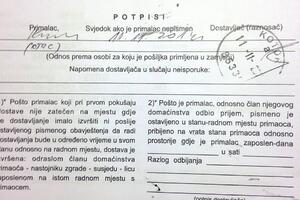 POTPISI
Primalac, Svjedok ako je primalac nepismen Dostavljač (raznosač)
(OTAC)
(Odnos prema osobi za koju je pošiljka primljena u zamjen
Napomena dostavljača u slučaju neisporuke:
)* Pošto primalac koji pri prvom pokušaju
dostave nije zatečen na mjestu gdje je
dostavljanje imalo izvršiti ni poslije
ostavljenog pismenog obavještenja da radi
dostavljanja bude u određeno vrijeme u svom
stanu odnosno na radnom mjestu, dostava je
izvršena: odraslom članu domaćinstva
primaoca - nastojniku zgrade - susjedu - licu
zaposlenom na istom radnom mjestu s
primaocem.
2)* Pošto je primalac, odnosno član njegovog
domaćinstva odbio prijem, pismeno je
ostavljeno u stanu-radnom mjestu primaoca,
pribijeno na vrata stana primaoca odnosno
prostorije gdje je primalac zaposlen-dana
u sati
Razlog odbijanja